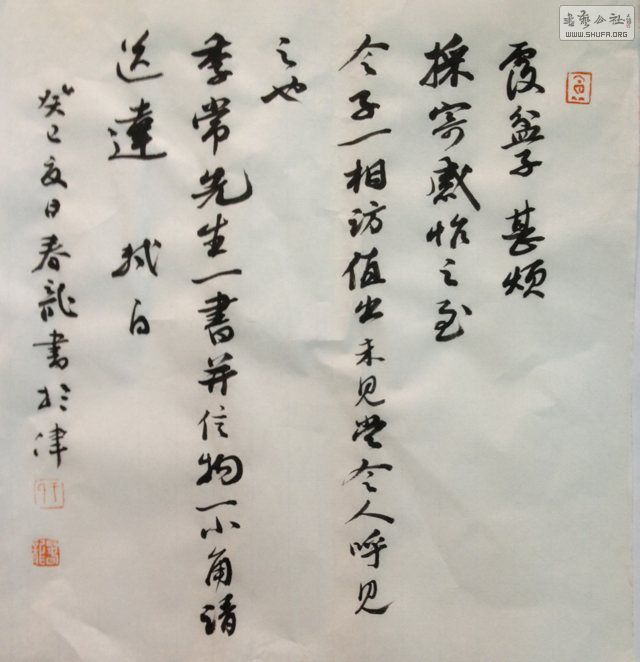 覆盆子甚烦
採寄感怍之至
令子一相访值出未见當令人呼见
之也
季常先生一書并信物一小角請
送達 軾白
癸巳夏日春龍書於津
書藝公社
WWW.SHUFA.ORG